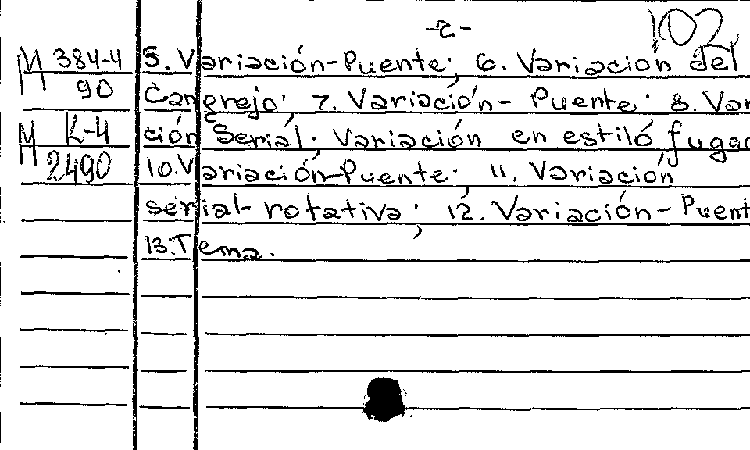 -2- 102
M 384-4 5. Variación-Puente; 6. Variación del
90 Cangrejo; 7. Variación- Puente; 8. Var
M L-4 ción Serial; Variación en estiló fuga
2490 10. Variación-Puente; 11. Variación
serial-rotativa; 12. Variación-Puent
13. Tema.